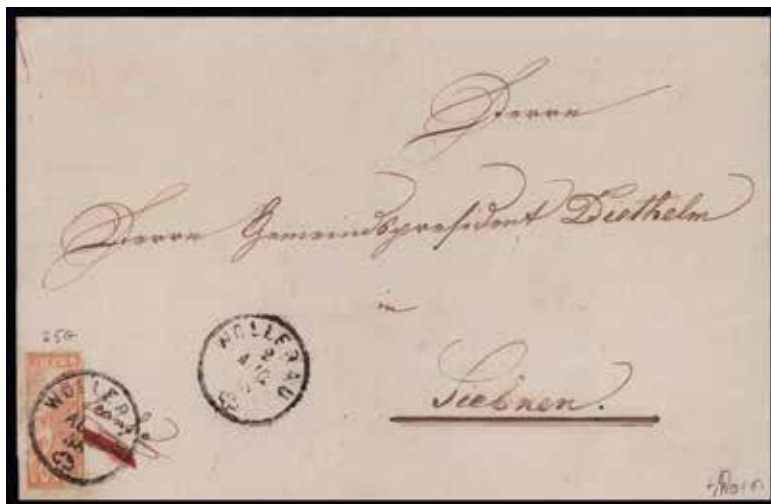 Herrn
Herrn Gemeindspräsident Diethelm
in
Siebnen.
25G
WOLLERAU
2
WOLLERAU